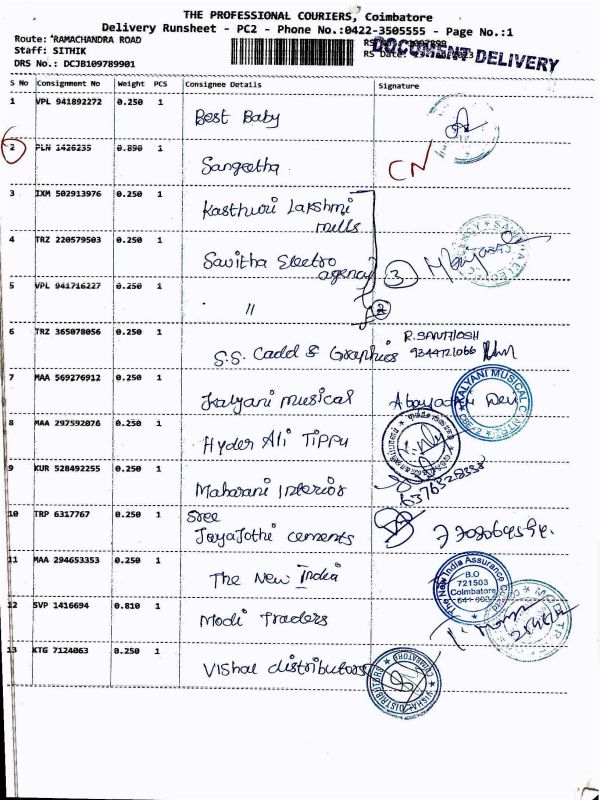 THE PROFESSIONAL COURIERS, Coimbatore
Delivery Runsheet - PC2 - Phone No.:0422-3505555 - Page No.:1
Route: *RAMACHANDRA ROAD
Staff: SITHIK
DRS No.: DCJB109789901
RS Date:
DOCUMENT DELIVERY
S No Consignment No Weight PCS Consignee Details Signature
1 VPL 941892272 0.250 1 Best Baby
2 PLN 1426235 0.890 1 Sangeetha CN
3 IXM 502913976 0.250 1 Kasthuri Lakshmi
mills
4 TRZ 220579503 0.250 1 Savitha Electro
agency 3
5 VPL 941716227 0.250 1 "
6 TRZ 365078056 0.250 1 S.S. Cadd & Graphics R.SANTHOSH
9344721066
7 MAA 569276912 0.250 1 Kalyani musical
KALYANI MUSICAL
8 MAA 297592076 0.250 1 Hyder Ali Tippu
9 KUR 528492255 0.250 1 Maharani Interior
10 TRP 6317767 0.250 1 Sree
JayaJothi cements
11 MAA 294653353 0.250 1 The New India
The New India Assurance
B.O
721503
Coimbatore
12 SVP 1416694 0.810 1 Modi Traders
13 KTG 7124063 0.250 1 Vishal distributors
VISHAL DISTRIBUTORS
COIMBATORE